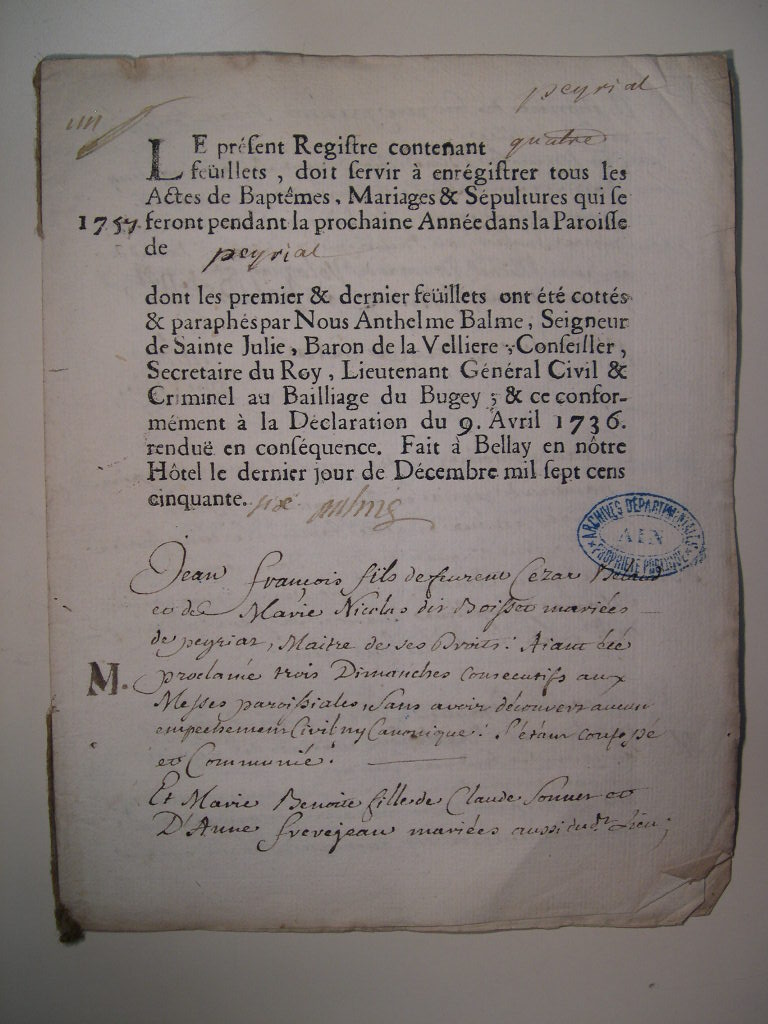 peyriat
LE préſent Regiſtre contenant quatre
feüillets, doit ſervir à enrégiſtrer tous les
Actes de Baptêmes, Mariages & Sépultures qui ſe
1757. feront pendant la prochaine Année dans la Paroiſſe
de peyriat
dont les premier & dernier feüillets ont été cottés
& paraphés par Nous Anthelme Balme, Seigneur
de Sainte Julie, Baron de la Velliere, Conſeiller,
Secretaire du Roy, Lieutenant Général Civil &
Criminel au Bailliage du Bugey; & ce confor-
mément à la Déclaration du 9. Avril 1736.
renduë en conſéquence. Fait à Bellay en nôtre
Hôtel le dernier jour de Décembre mil ſept cens
cinquante. six
ARCHIVES DÉPARTEMENTALES
AIN
PROPRIÉTÉ PUBLIQUE
Jean François fils de feu Cézar
et de Marie Nicolas dit Boisson mariées
de peyriat, Maitre de ses Droits: Aiant été
M. proclamé trois Dimanches consecutifs aux
Messes paroissiales, Sans avoir découvert aucun
empechement Civil ny Canonique: S'étant confessé
et Communié.
Et Marie Benoite fille de Claude et
D'Anne frevejean mariées aussi dudt. Lieu;